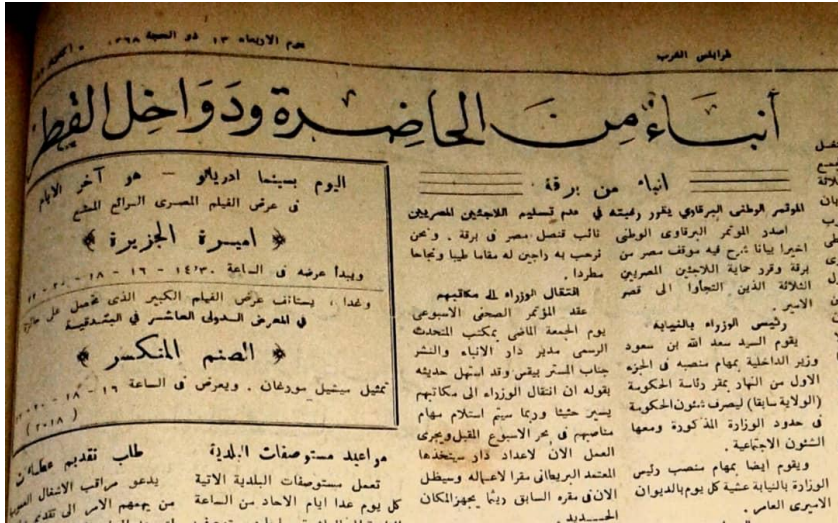 طرابلس الغرب
يوم الاربعاء ١٣ ذو الحجة ١٣٦٨
أنباء من الحاضرة ودواخل القطر
انباء من برقة
المؤتمر الوطنى البرقاوي يقرر رغبته في عدم تسليم اللاجئين المصريين
اصدر المؤتمر البرقاوي الوطنى
اخيرا بيانا شرح فيه موقف مصر من
برقة وقرر حماية اللاجئين المصريين
الثلاثة الذين التجأوا الى قصر
الامير.
رئيس الوزراء بالنيابة
يقوم السيد سعد الله بن سعود
وزير الداخلية بمهام منصبه فى الجزء
الاول من النهار بمقر رئاسة الحكومة
(الولاية سابقا) ليصرف شئون الحكومة
فى حدود الوزارة المذكورة ومعها
الشئون الاجتماعية.
ويقوم ايضا بمهام منصب رئيس
الوزارة بالنيابة عشية كل يوم بالديوان
الاميرى العامر.
نائب قنصل مصر فى برقة. ونحن
نرحب به راجين له مقاما طيبا ونجاحا
مطردا.
انتقال الوزراء الى مكاتبهم
عقد المؤتمر الصحفى الاسبوعى
يوم الجمعة الماضى بمكتب المتحدث
الرسمى مدير دار الانباء والنشر
جناب المستر بيقس وقد استهل حديثه
بقوله ان انتقال الوزراء الى مكاتبهم
يسير حثيثا وربما سيتم استلام مهام
مناصبهم فى بحر الاسبوع المقبل ويجرى
العمل الآن لاعداد دار سيتخذها
المعتمد البريطانى مقرا لاعماله وسيظل
الان فى مقره السابق ريثما يجهز المكان
الجديد
اليوم بسينما ادريانو – هو آخر الايام
فى عرض الفيلم المصرى الرائع الممتع
﴿ اميرة الجزيرة ﴾
ويبدأ عرضه فى الساعة ١٤/٣٠ - ١٦ - ١٨ - ٢٠ - ٢٢
وغدا، يستأنف عرض الفيلم الكبير الذى تحصل على جائزة
فى المعرض الدولى العاشر فى البندقية
﴿ الصنم المنكسر ﴾
تمثيل ميشيل مورغان. ويعرض فى الساعة ١٦ - ١٨ - ٢٠ - ٢٢
(٢٠١٨)
مواعيد مستوصفات البلدية
تعمل مستوصفات البلدية الاتية
كل يوم عدا ايام الاحاد من الساعة
طلب تقديم عطاءات
يدعو مراقب الاشغال العمومية
من يهمهم الامر الى تقديم